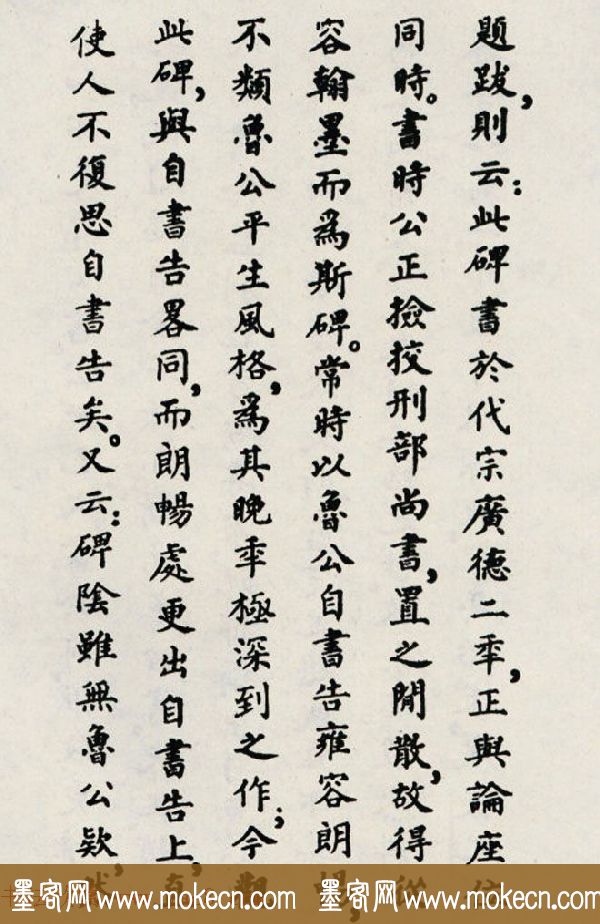 題跋，則云：此碑書於代宗廣德二秊，正與論座位
同時。書時公正撿挍刑部尚書，置之閒散，故得從
容翰墨而為斯碑。常時以魯公自書告雍容朗暢，
不類魯公平生風格，為其晚秊極深到之作；今觀
此碑，與自書告畧同，而朗暢處更出自書告上，真
使人不復思自書告矣。又云：碑陰雖無魯公欵，
墨客网 www.mokecn.com 墨客网 www.mokecn.com